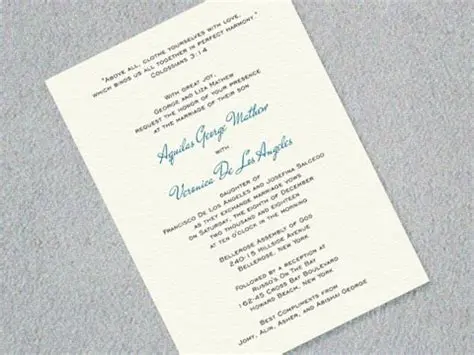 "Above all, clothe yourselves with love,
which binds us all together in perfect harmony."
Colossians 3:14
With great joy,
George and Liza Mathew
request the honor of your presence
at the marriage of their son
Aquilas George Mathew
with
Veronica De Los Angeles
daughter of
Francisco De Los Angeles and Josefina Salcedo
as they exchange marriage vows
on Saturday, the eighth of December
two thousand and eighteen
at ten o'clock in the morning
Bellerose Assembly of God
240-15 Hillside Avenue
Bellerose, New York
Followed by a reception at
Russo's On The Bay
162-45 Cross Bay Boulevard
Howard Beach, New York
Best Compliments from
Jomy, Alir, Asher, and Abishai George